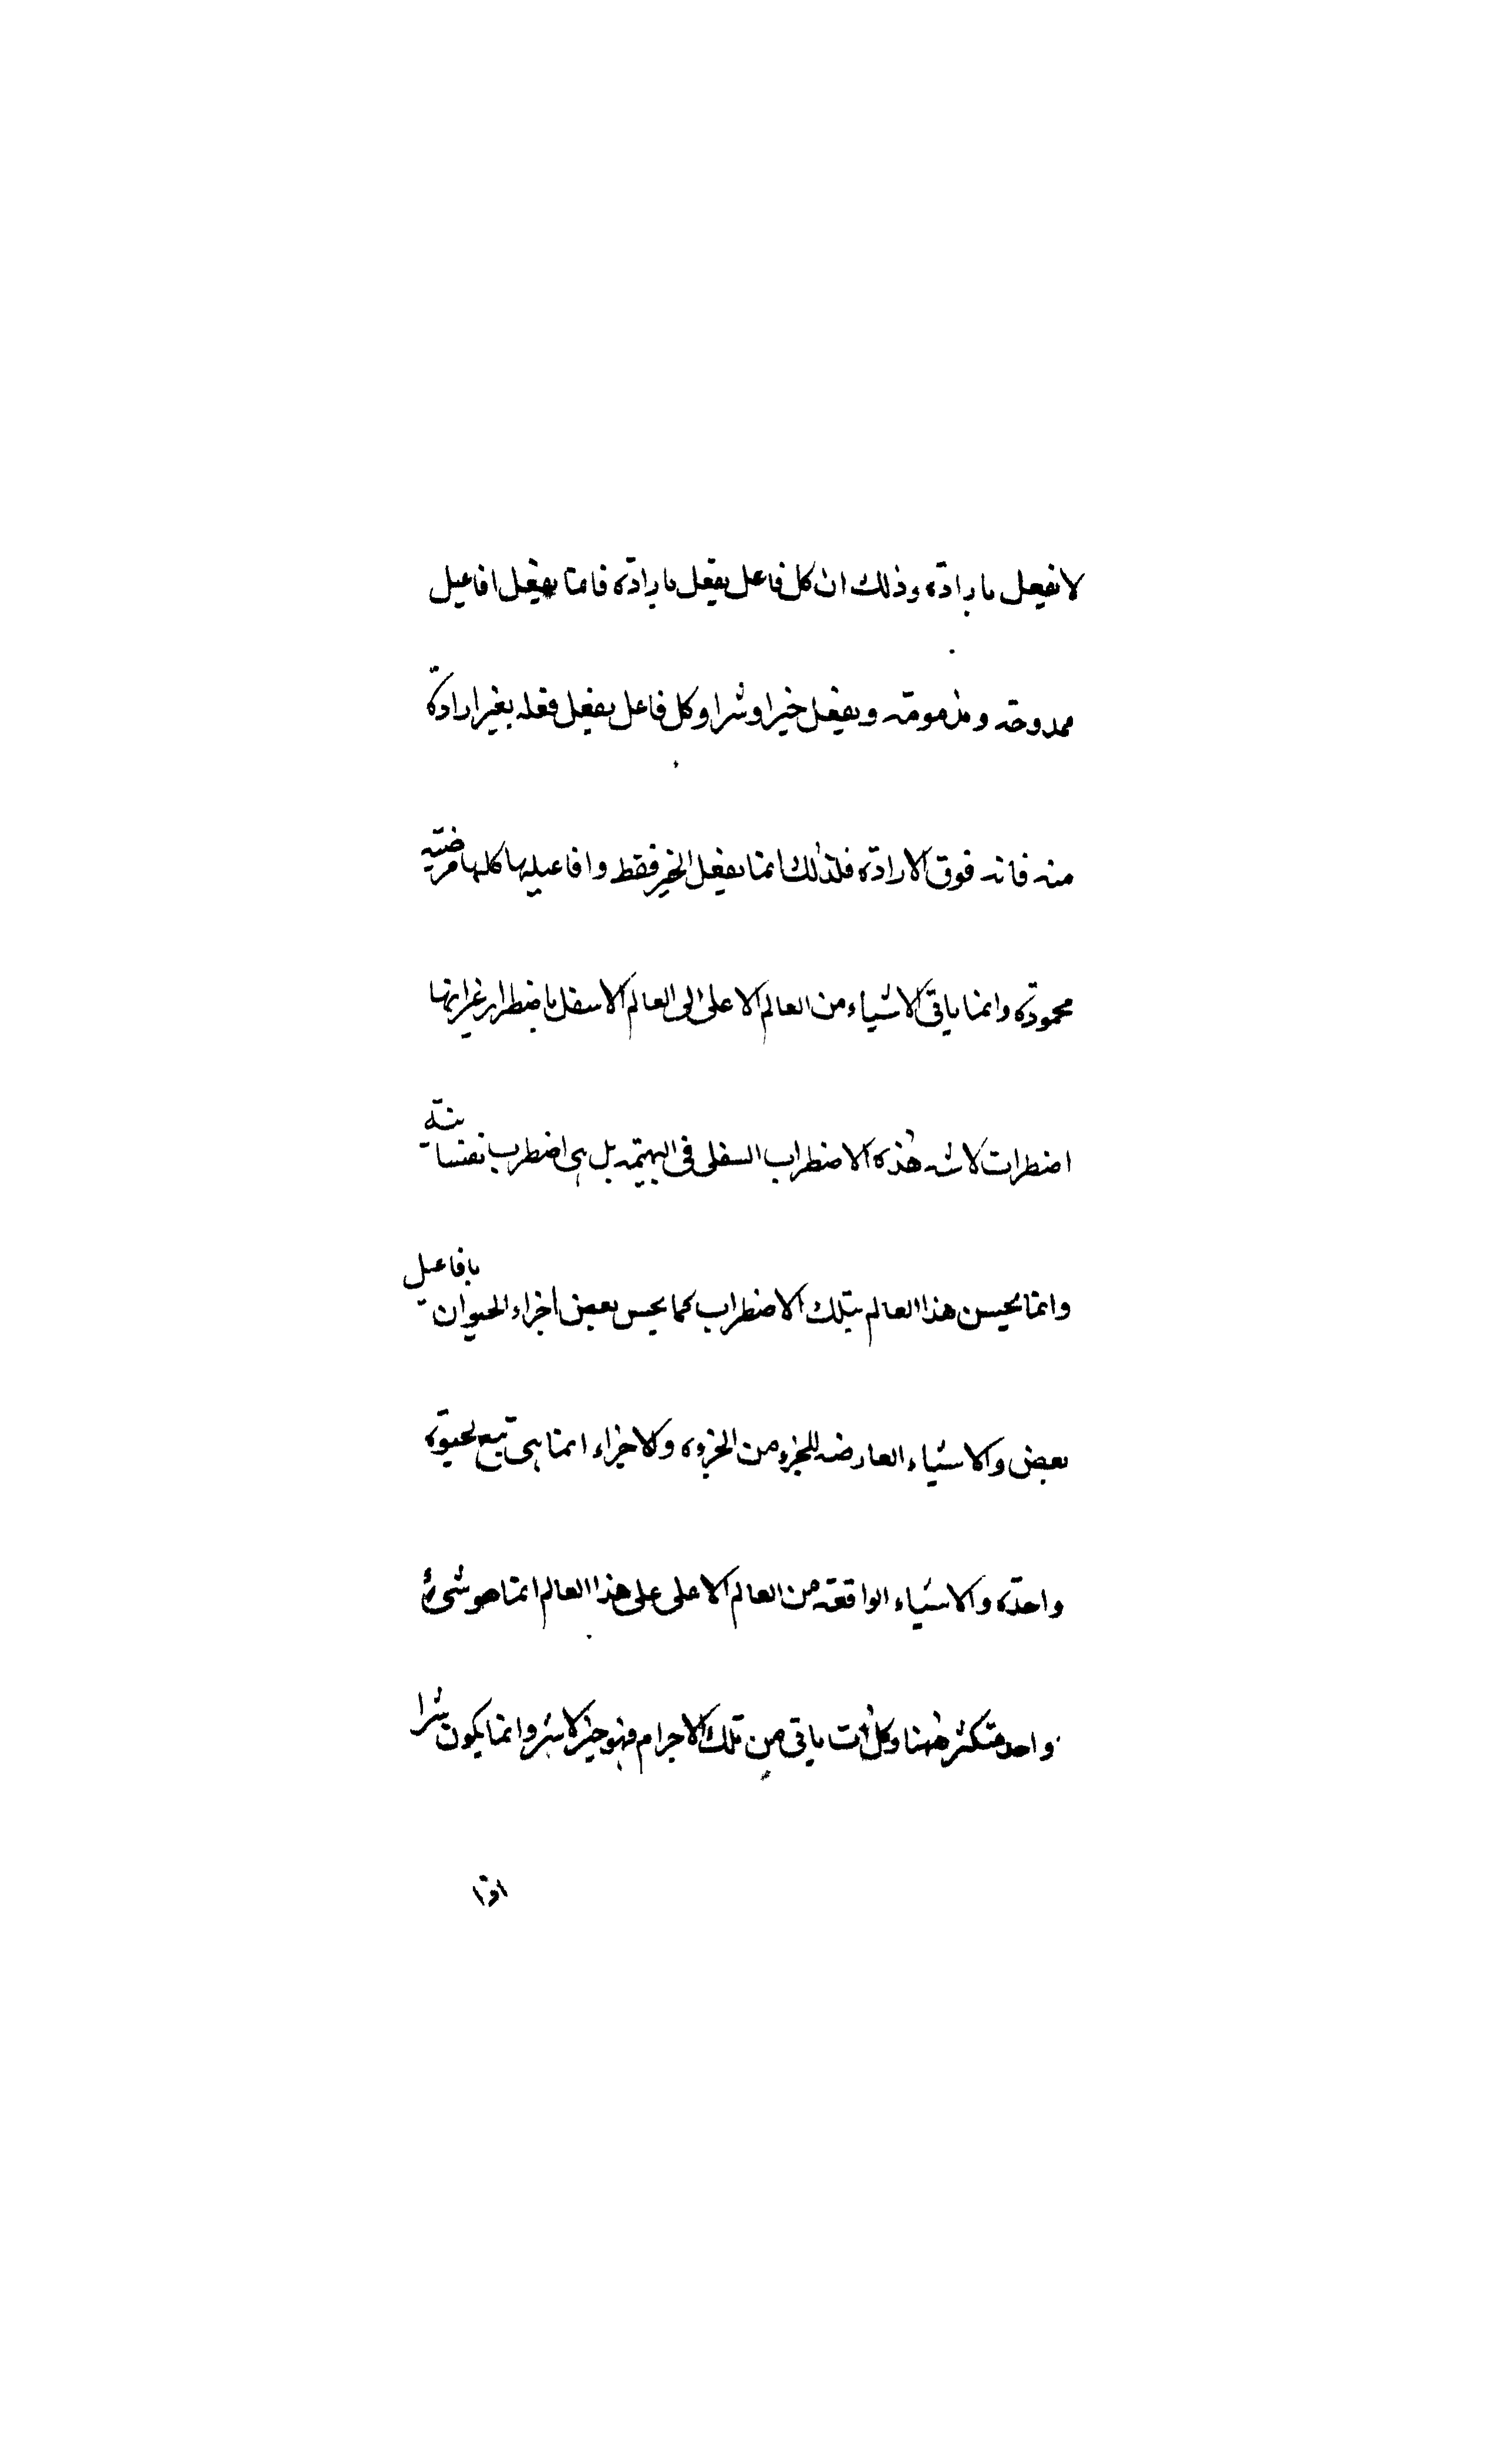 لا يفعل بارادة وذلك ان كل فاعل يفعل بارادة فانما يفعل افاعيل
ممدوحة ومذمومة ويفعل خيرا وشرا وكل فاعل يفعل فعله بغير ارادة
منه فانه فوق الارادة فلذلك انما يفعل الخير فقط وافاعيلها كلها مرضية
محمودة وانما ياتى الاشياء من العالم الاعلى الى العالم الاسفل باضطرار غير انها
اضطرات لا شبه هذه الاضطراب السفلى فى البهيمة بل هى اضطرب نفسانية
وانما يحس هذا العالم بتلك الاضطراب كما يحس بعض اجزاء الحيوان بافاعيل
بعض والاشياء العارضة للجزء من الجزوه والاجزاء انما هى تبع لحيوة
واحدة والاشياء الواقعة من العالم الاعلى على هذا العالم انما هو شىء
واحد متكثر ههنا وكل ات ياتى من تلك الاجرام فهو خير لا شر وانما يكون شرا